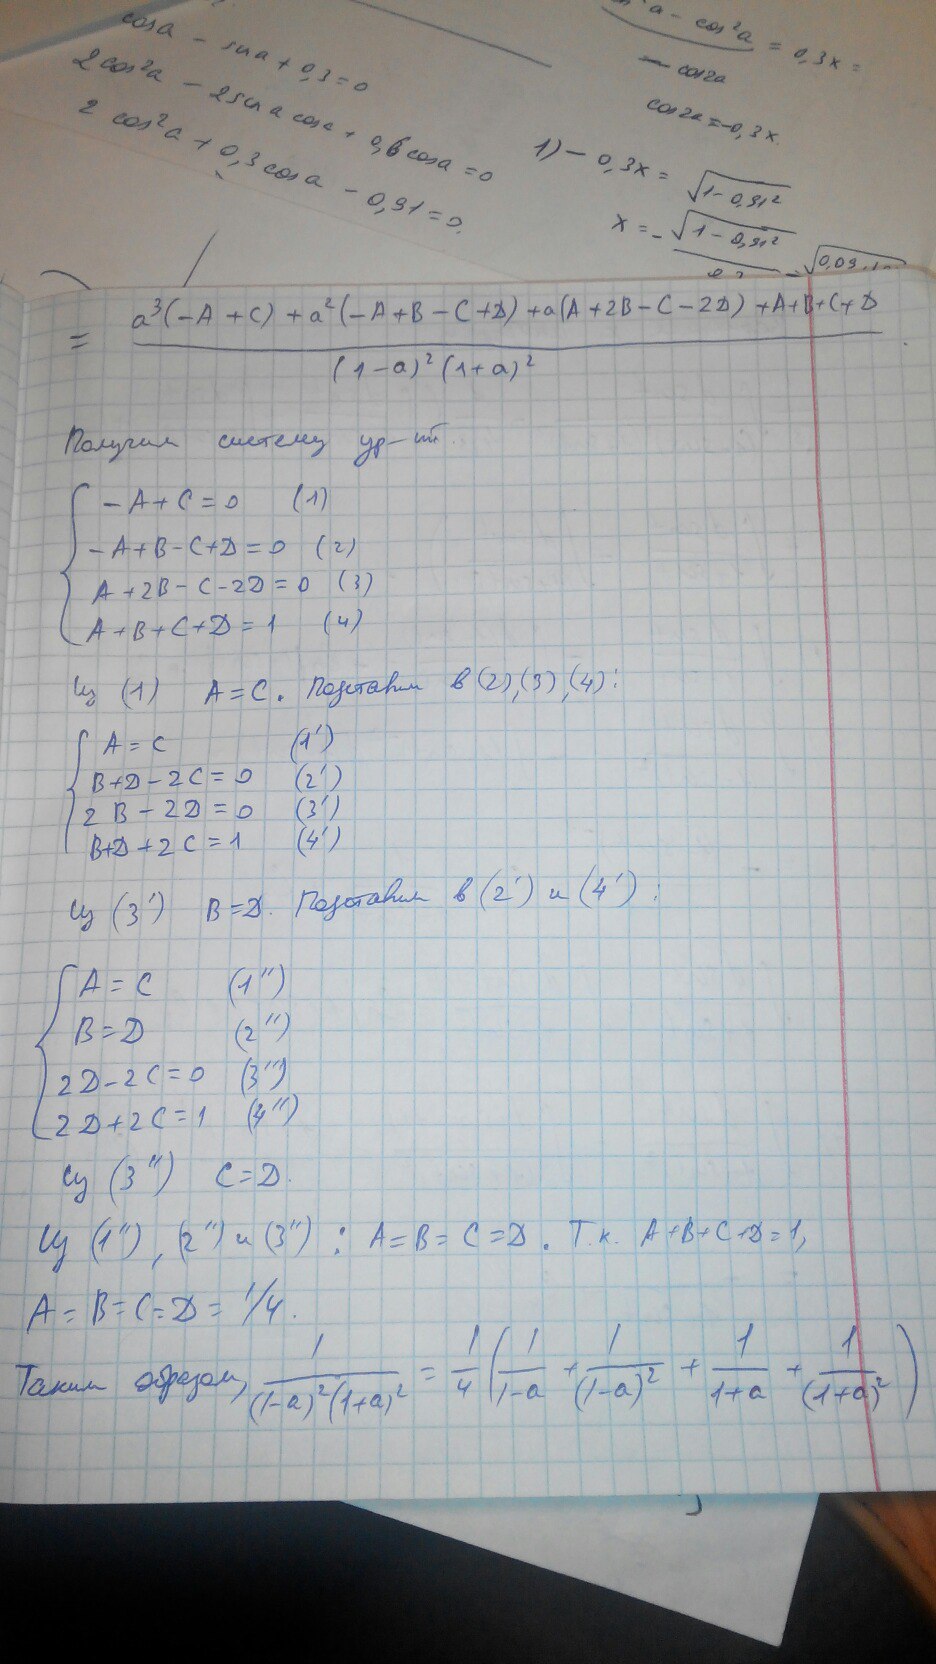 cosa - sina + 0,3 = 0
2cos²a - 2sin a cosa + 0,6cosa = 0
2 cos²a + 0,3cosa - 0,91 = 0
a - cos²a = 0,3x =
- cos2a
cos2a = -0,3x
1) - 0,3x = √1-0,91²
x = - √1-0,91²
= a³(-A+C) + a²(-A+B-C+D) + a(A+2B-C-2D) + A+B+C+D
(1-a)²(1+a)²
Получим систему ур-ий
-A+C=0 (1)
-A+B-C+D=0 (2)
A+2B-C-2D=0 (3)
A+B+C+D=1 (4)
Из (1) A=C. Подставим в (2),(3),(4):
A=C (1')
B+D-2C=0 (2')
2B-2D=0 (3')
B+D+2C=1 (4')
Из (3') B=D. Подставим в (2') и (4'):
A=C (1'')
B=D (2'')
2D-2C=0 (3'')
2D+2C=1 (4'')
Из (3'') C=D.
Из (1''), (2'') и (3''): A=B=C=D. Т.к. A+B+C+D=1,
A=B=C=D=1/4.
Таким образом, 1/(1-a)²(1+a)² = 1/4 (1/1-a + 1/(1-a)² + 1/1+a + 1/(1+a)²)